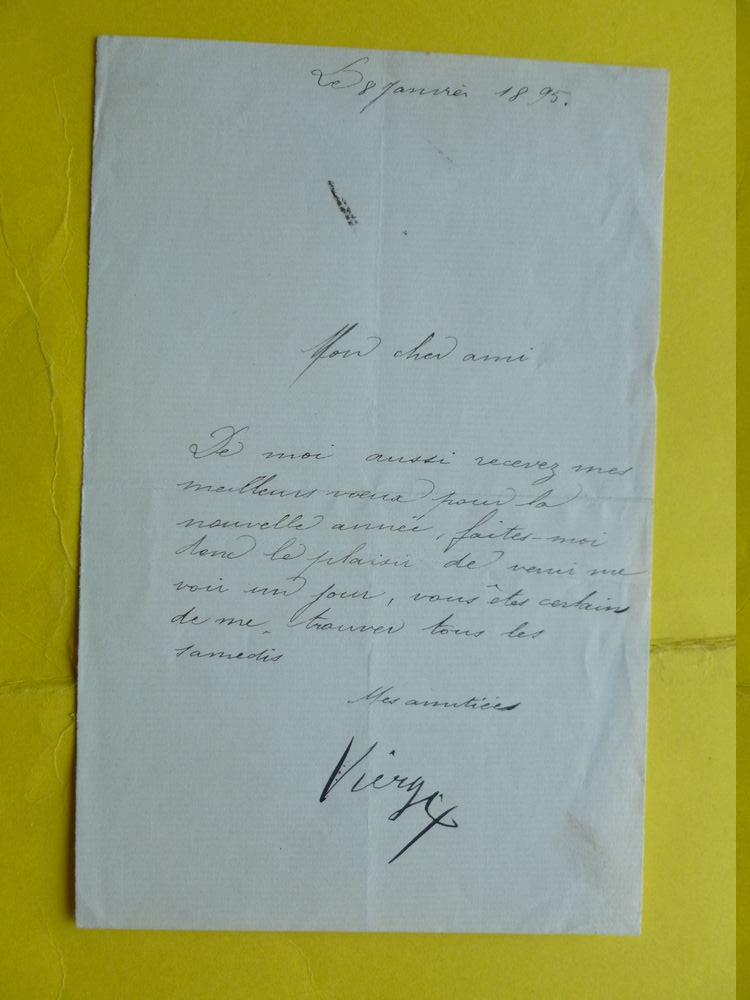 Le 8 Janvier 1895.
Mon cher ami
De moi aussi recevez mes
meilleurs voeux pour la
nouvelle année, faites-moi
donc le plaisir de venir me
voir un jour, vous êtes certain
de me trouver tous les
samedis
Mes amitiées
Vierge